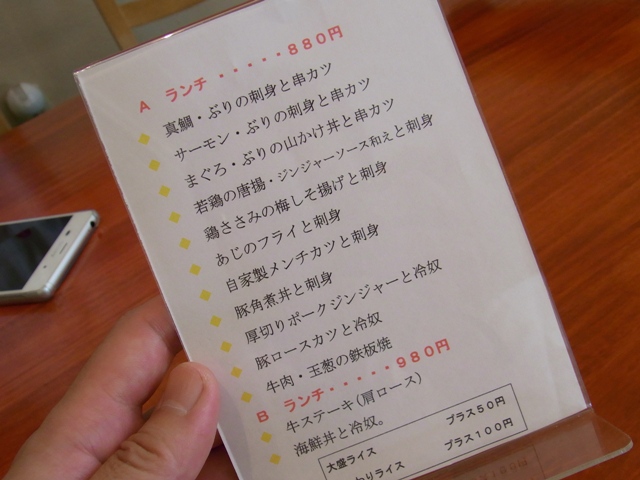 A ランチ・・・・・880円
◆ 真鯛・ぶりの刺身と串カツ
◆ サーモン・ぶりの刺身と串カツ
◆ まぐろ・ぶりの山かけ丼と串カツ
◆ 若鶏の唐揚・ジンジャーソース和えと刺身
◆ 鶏ささみの梅しそ揚げと刺身
◆ あじのフライと刺身
◆ 自家製メンチカツと刺身
◆ 豚角煮丼と刺身
◆ 厚切りポークジンジャーと冷奴
◆ 豚ロースカツと冷奴
◆ 牛肉・玉葱の鉄板焼
B ランチ・・・・・980円
◆ 牛ステーキ(肩ロース)
◆ 海鮮丼と冷奴。
大盛ライス プラス50円
わりライス プラス100円